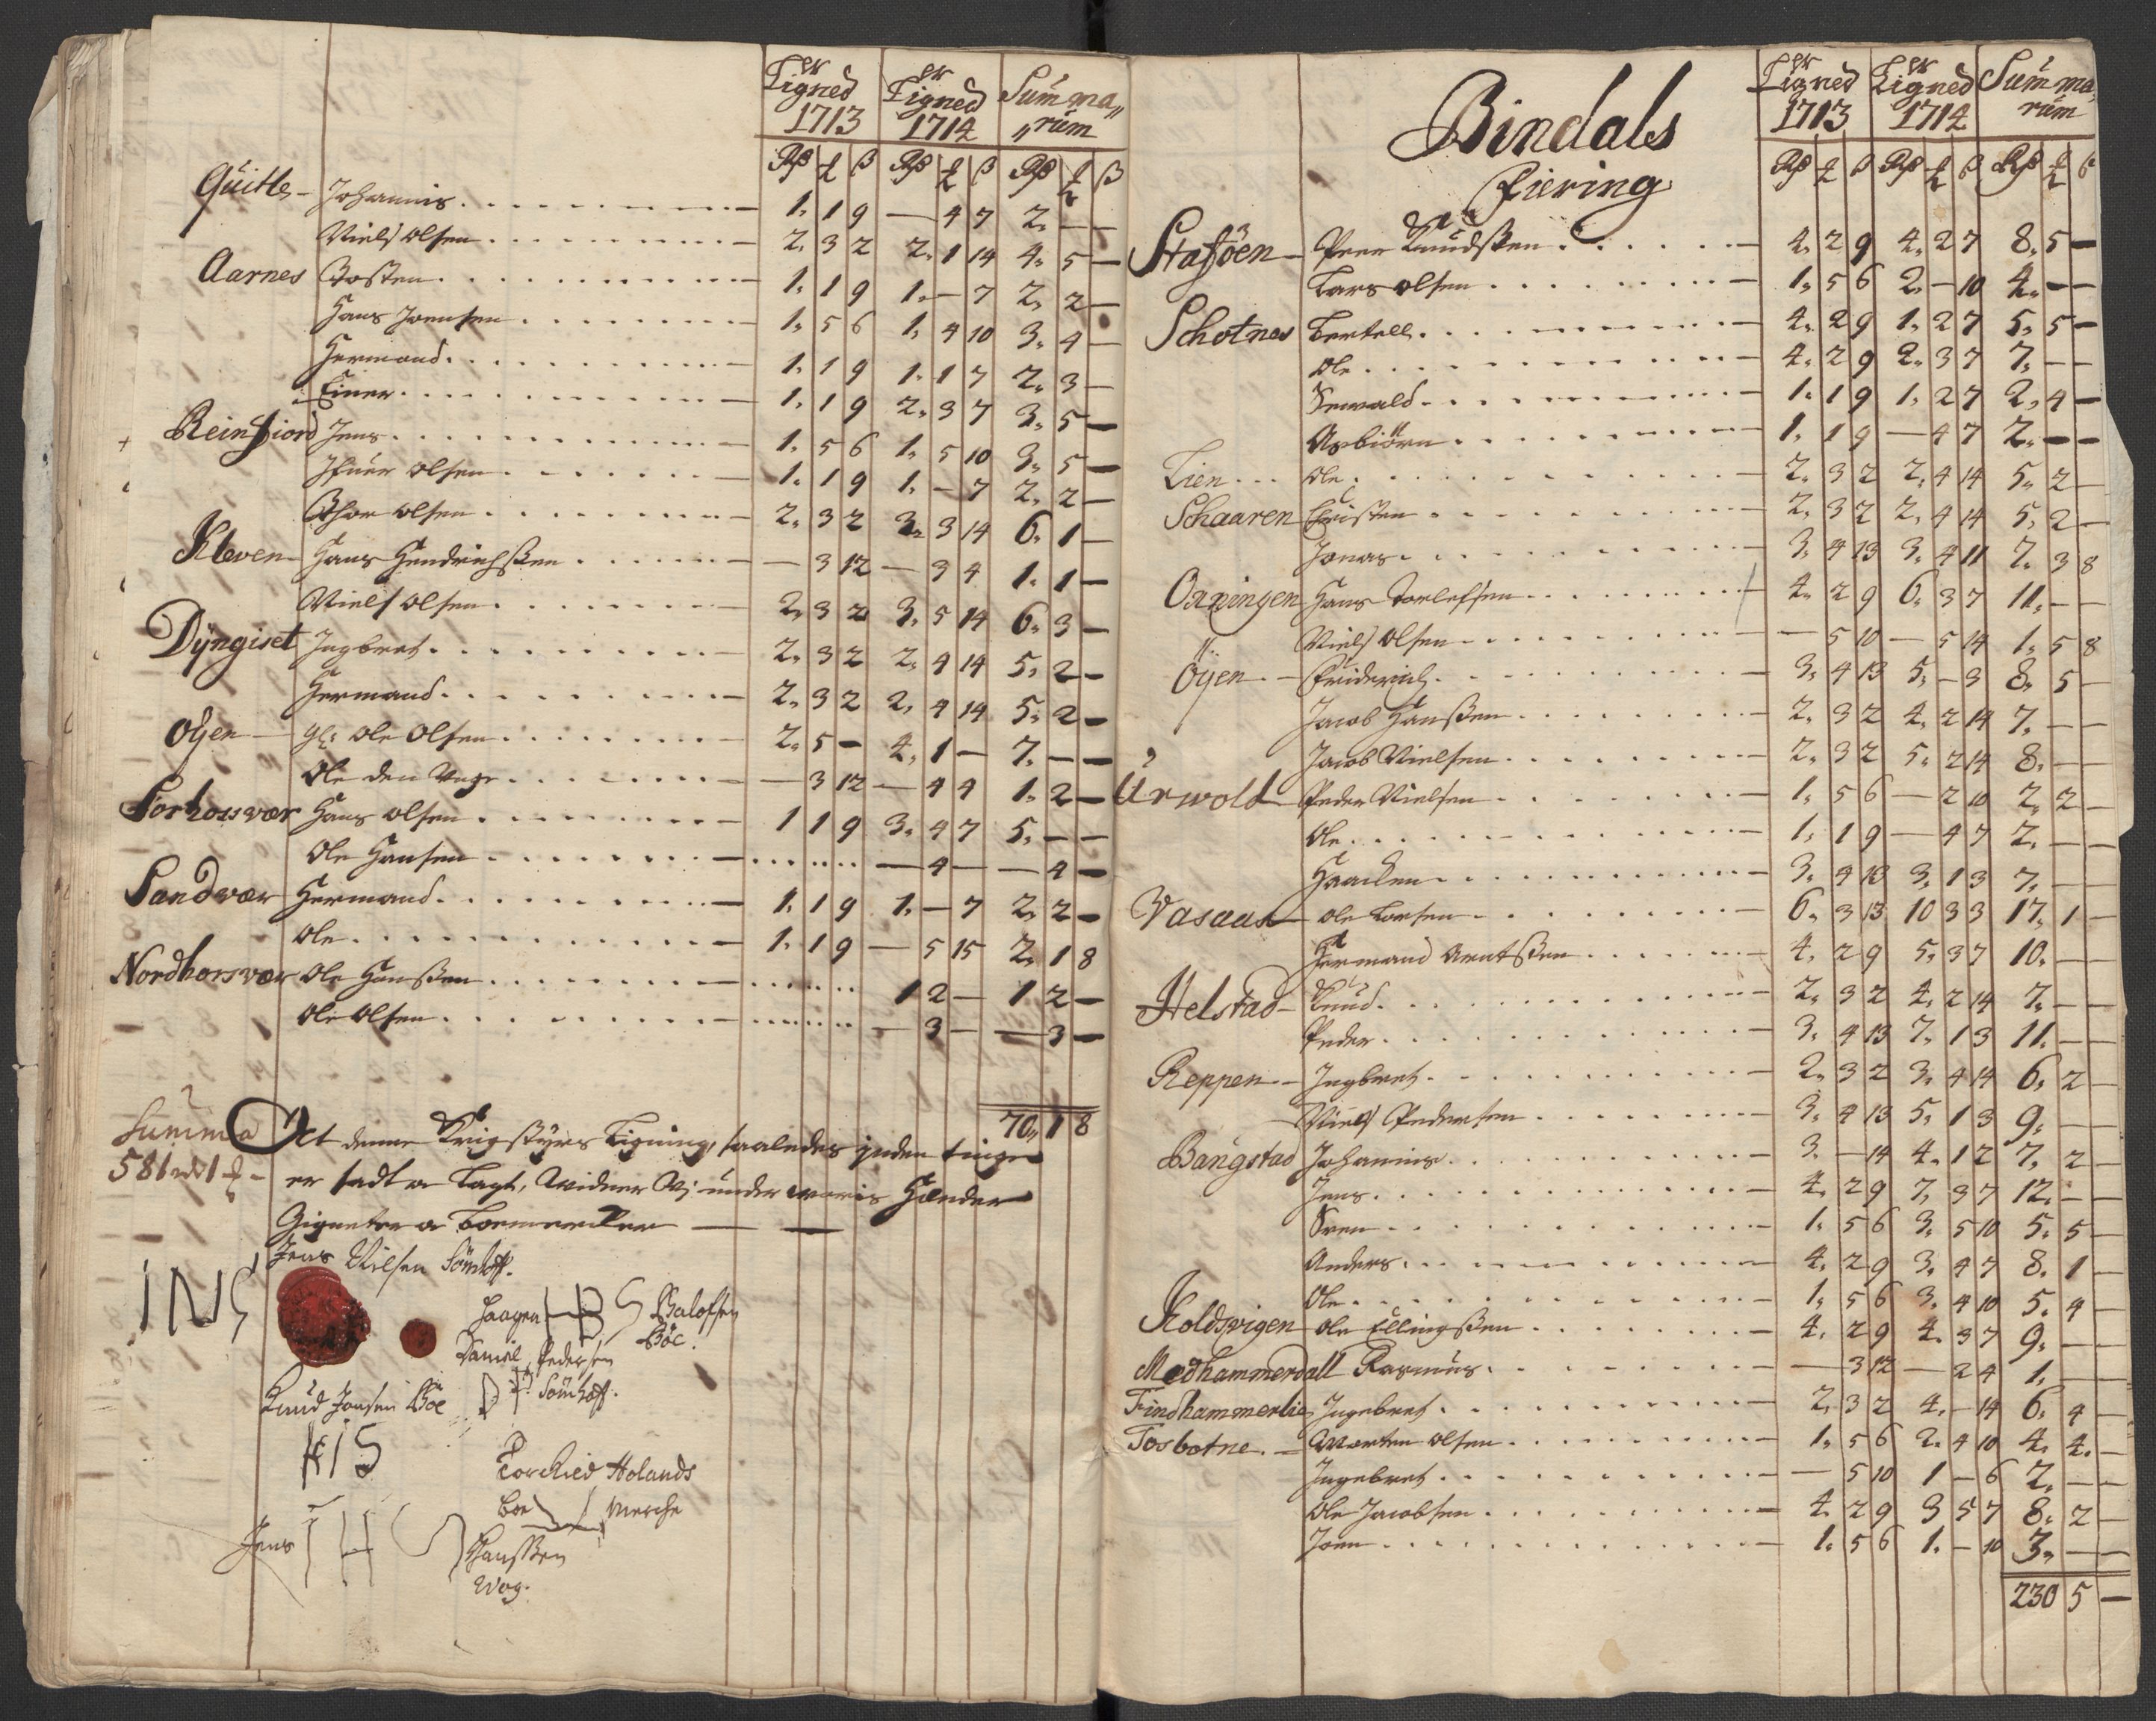 er Ligned 1713 | er Ligned 1714 | Summa„ „rum
Rß ₰ ß | Rß ₰ ß | Rß ₰ ß
Quitle – Johannis 1. 1 9 | — 4 7 | 2. — —
Niels Olsen 2. 3 2 | 2. 1 14 | 4. 5 —
Aarnes Tosten 1. 1 9 | 1. — 7 | 2. 2 —
Hans Joensen 1. 5 6 | 1. 4 10 | 3. 4 —
Hermand 1. 1 9 | 1. 1 7 | 2. 3 —
Einer 1. 1 9 | 2. 3 7 | 3. 5 —
Reinfiord Jens 1. 5 6 | 1. 5 10 | 3. 5 —
Ifuer Olsen 1. 1 9 | 1. — 7 | 2. 2 —
Thor Olsen 2. 3 2 | 3. 3 14 | 6. 1 —
Kleven – Hans Hendrichßen — 3 12 | — 3 4 | 1. 1 —
Niels Olsen 2. 3 2 | 3. 5 14 | 6. 3 —
Dÿngiset Ingbret 2. 3 2 | 2. 4 14 | 5. 2 —
Hermand 2. 3 2 | 2. 4 14 | 5. 2 —
Oÿen – Gl: Ole Olsen 2. 5 — | 4. 1 — | 7. — —
Ole den Unge — 3 12 | — 4 4 | 1. 2 —
Sorhorsvær Hans Olsen 1 1 9 | 3. 4 7 | 5. — —
Ole Hansen | — 4 — | — 4 —
Sandvær Hermand 1. 1 9 | 1. — 7 | 2. 2 —
Ole 1. 1 9 | — 5 15 | 2. 1 8
Nordhorsvær Ole Hanßen | 1 2 — | 1 2 —
Ole Olsen | — 3 — | — 3 —
70„ 1 8
Summa
581 rdr 1 ₰ –
At denne Krigstÿrs Ligning, saaledes inden tinge
er sadt og Lagt, Widner Wj under woris Hænder
Signeter og boemercker
Jens Nilsen Sömhoff.
INS
Haagen HBS Balofsen
Böe.
Daniel Pedersen
DP. Sömhoff.
Knud Jonsen Böe
KIS
Torckied Holands
boe merche
Jens IHS Hanssen
Wog.
Bindals
Fiering
er Ligned 1713 | er Ligned 1714 | Summa, rum
Rß ₰ ß | Rß ₰ ß | Rß ₰ ß
Staföen – Peer Knudßen 4. 2 9 | 4. 2 7 | 8. 5 —
Lars Olsen 1. 5 6 | 2. — 10 | 4. — —
Schotnes Bertell 4. 2 9 | 1. 2 7 | 5. 5 —
Ole 4. 2 9 | 2. 3 7 | 7. — —
Sewald 1. 1 9 | 1. 2 7 | 2. 4 —
Asbiörn 1. 1 9 | — 4 7 | 2. — —
Lien Ole 2. 3 2 | 2. 4 14 | 5. 2 —
Schaaren Christen 2. 3 2 | 2. 4 14 | 5. 2 —
Jonas 3. 4 13 | 3. 4 11 | 7. 3 8
Oxningen Hans Torlefsen 4. 2 9 | 6. 3 7 | 11. — —
Niels Olsen — 5 10 | — 5 14 | 1. 5 8
Öÿen – Friderich 3. 4 13 | 5. — 3 | 8. 5 —
Jacob Hanßen 2. 3 2 | 4. 2 14 | 7. — —
Jacob Nielsen 2. 3 2 | 5. 2 14 | 8. — —
Urwold Peder Nielsen 1. 5 6 | — 2 10 | 2. 2 —
Ole 1. 1 9 | — 4 7 | 2. — —
Haacken 3. 4 13 | 3. 1 3 | 7. — —
Vasaas Ole Larsen 6. 3 13 | 10 3 3 | 17. 1 —
Hermand Arntßen 4. 2 9 | 5. 3 7 | 10. — —
Helstad – Knud 2. 3 2 | 4. 2 14 | 7. — —
Peder 3. 4 13 | 7. 1 3 | 11. — —
Reppen – Ingbret 2. 3 2 | 3. 4 14 | 6. 2 —
Niels Pedersen 3. 4 13 | 5. 1 3 | 9. — —
Bangstad Johannis 3. — 14 | 4. 1 2 | 7. 2 —
Jens 4. 2 9 | 7. 3 7 | 12. — —
Sven 1. 5 6 | 3. 5 10 | 5. 5 —
Anders 4. 2 9 | 3. 4 7 | 8. 1 —
Ole 1. 5 6 | 3. 4 10 | 5. 4 —
Koldsvigen Ole Ellingßen 4. 2 9 | 4. 3 7 | 9. — —
Medhammerdall Rasmus — 3 12 | — 2 4 | 1. — —
Findhammerlie Ingebret 2. 3 2 | 4. — 14 | 6. 4 —
Tosbotne. – Morten Olsen 1. 5 6 | 2. 4 10 | 4. 4. —
Ingebret — 5 10 | 1 — 6 | 2. — —
Ole Jacobsen 4. 2 9 | 3 5 7 | 8. 2 —
Joen 1. 5 6 | 1. — 10 | 3. — —
230 5 —